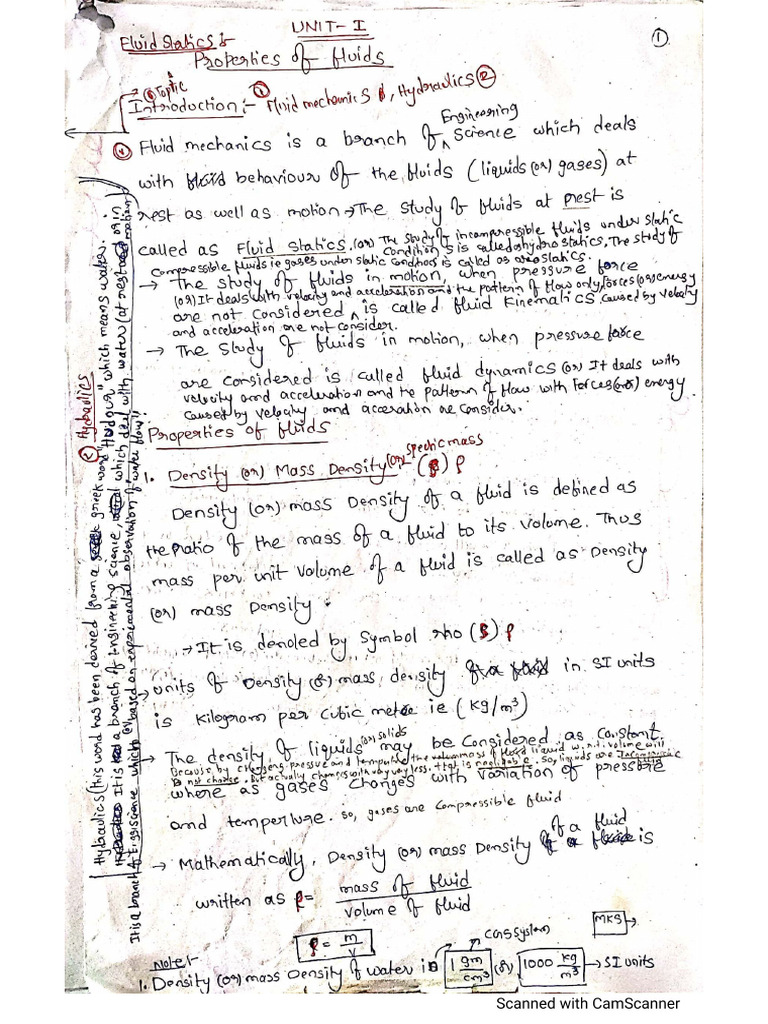 UNIT-I
Fluid Statics &
Properties of fluids
1
Topic
Introduction:- ① Fluid mechanics &, Hydraulics ②
Engineering
① Fluid mechanics is a branch of Science which deals
with behaviour of the fluids (liquids (or) gases) at
rest as well as motion → The study of fluids at rest is
called as Fluid statics, (or) The study of incompressible fluids under static
Condition is called hydro statics, The study of
compressible fluids ie gases under static conditions is called as aerostatics.
→ The study of fluids in motion, when pressure force
(or) It deals with velocity and acceleration and the pattern of flow only forces (or) energy
are not considered is called fluid kinematics caused by velocity
and acceleration are not consider.
→ The study of fluids in motion, when pressure force
are considered is called fluid dynamics (or It deals with
velocity and acceleration and the pattern of flow with forces (or) energy
caused by velocity and acceration are consider.
Properties of fluids
(or) specific mass
1. Density (or) Mass Density - ρ
Density (or) mass Density of a fluid is defined as
the ratio of the mass of a fluid to its volume. Thus
mass per unit volume of a fluid is called as Density
(or) mass Density.
→ It is denoted by symbol rho ρ
→ units of Density (or) mass density in SI units
is kilogram per cubic metre ie (kg/m³)
(or) solids
→ The density of liquids may be considered as constant.
Because by changing pressure and temperature the volume of liquid w.r.t. volume will
is not change. But actually changes with very very less. that is negligible. so, liquids are Incompressible
where as gases changes with variation of pressure
and temperture. so, gases are compressible fluid
→ Mathematically, Density (or) mass Density of a fluid is
written as ρ = mass of fluid
volume of fluid
ρ = m/v
CGS system
MKS
Note:-
1. Density (or) mass Density of water is 1 gm/cm³ (or) 1000 kg/m³ → SI units
② Hydraulics
Hydraulics (this word has been derived from a greek word "Hudour" which means water.
It is a branch of Engineering science, which deal with water (at rest or in motion)
It is a branch of science which based on experimental observation of water flow"
Scanned with CamScanner